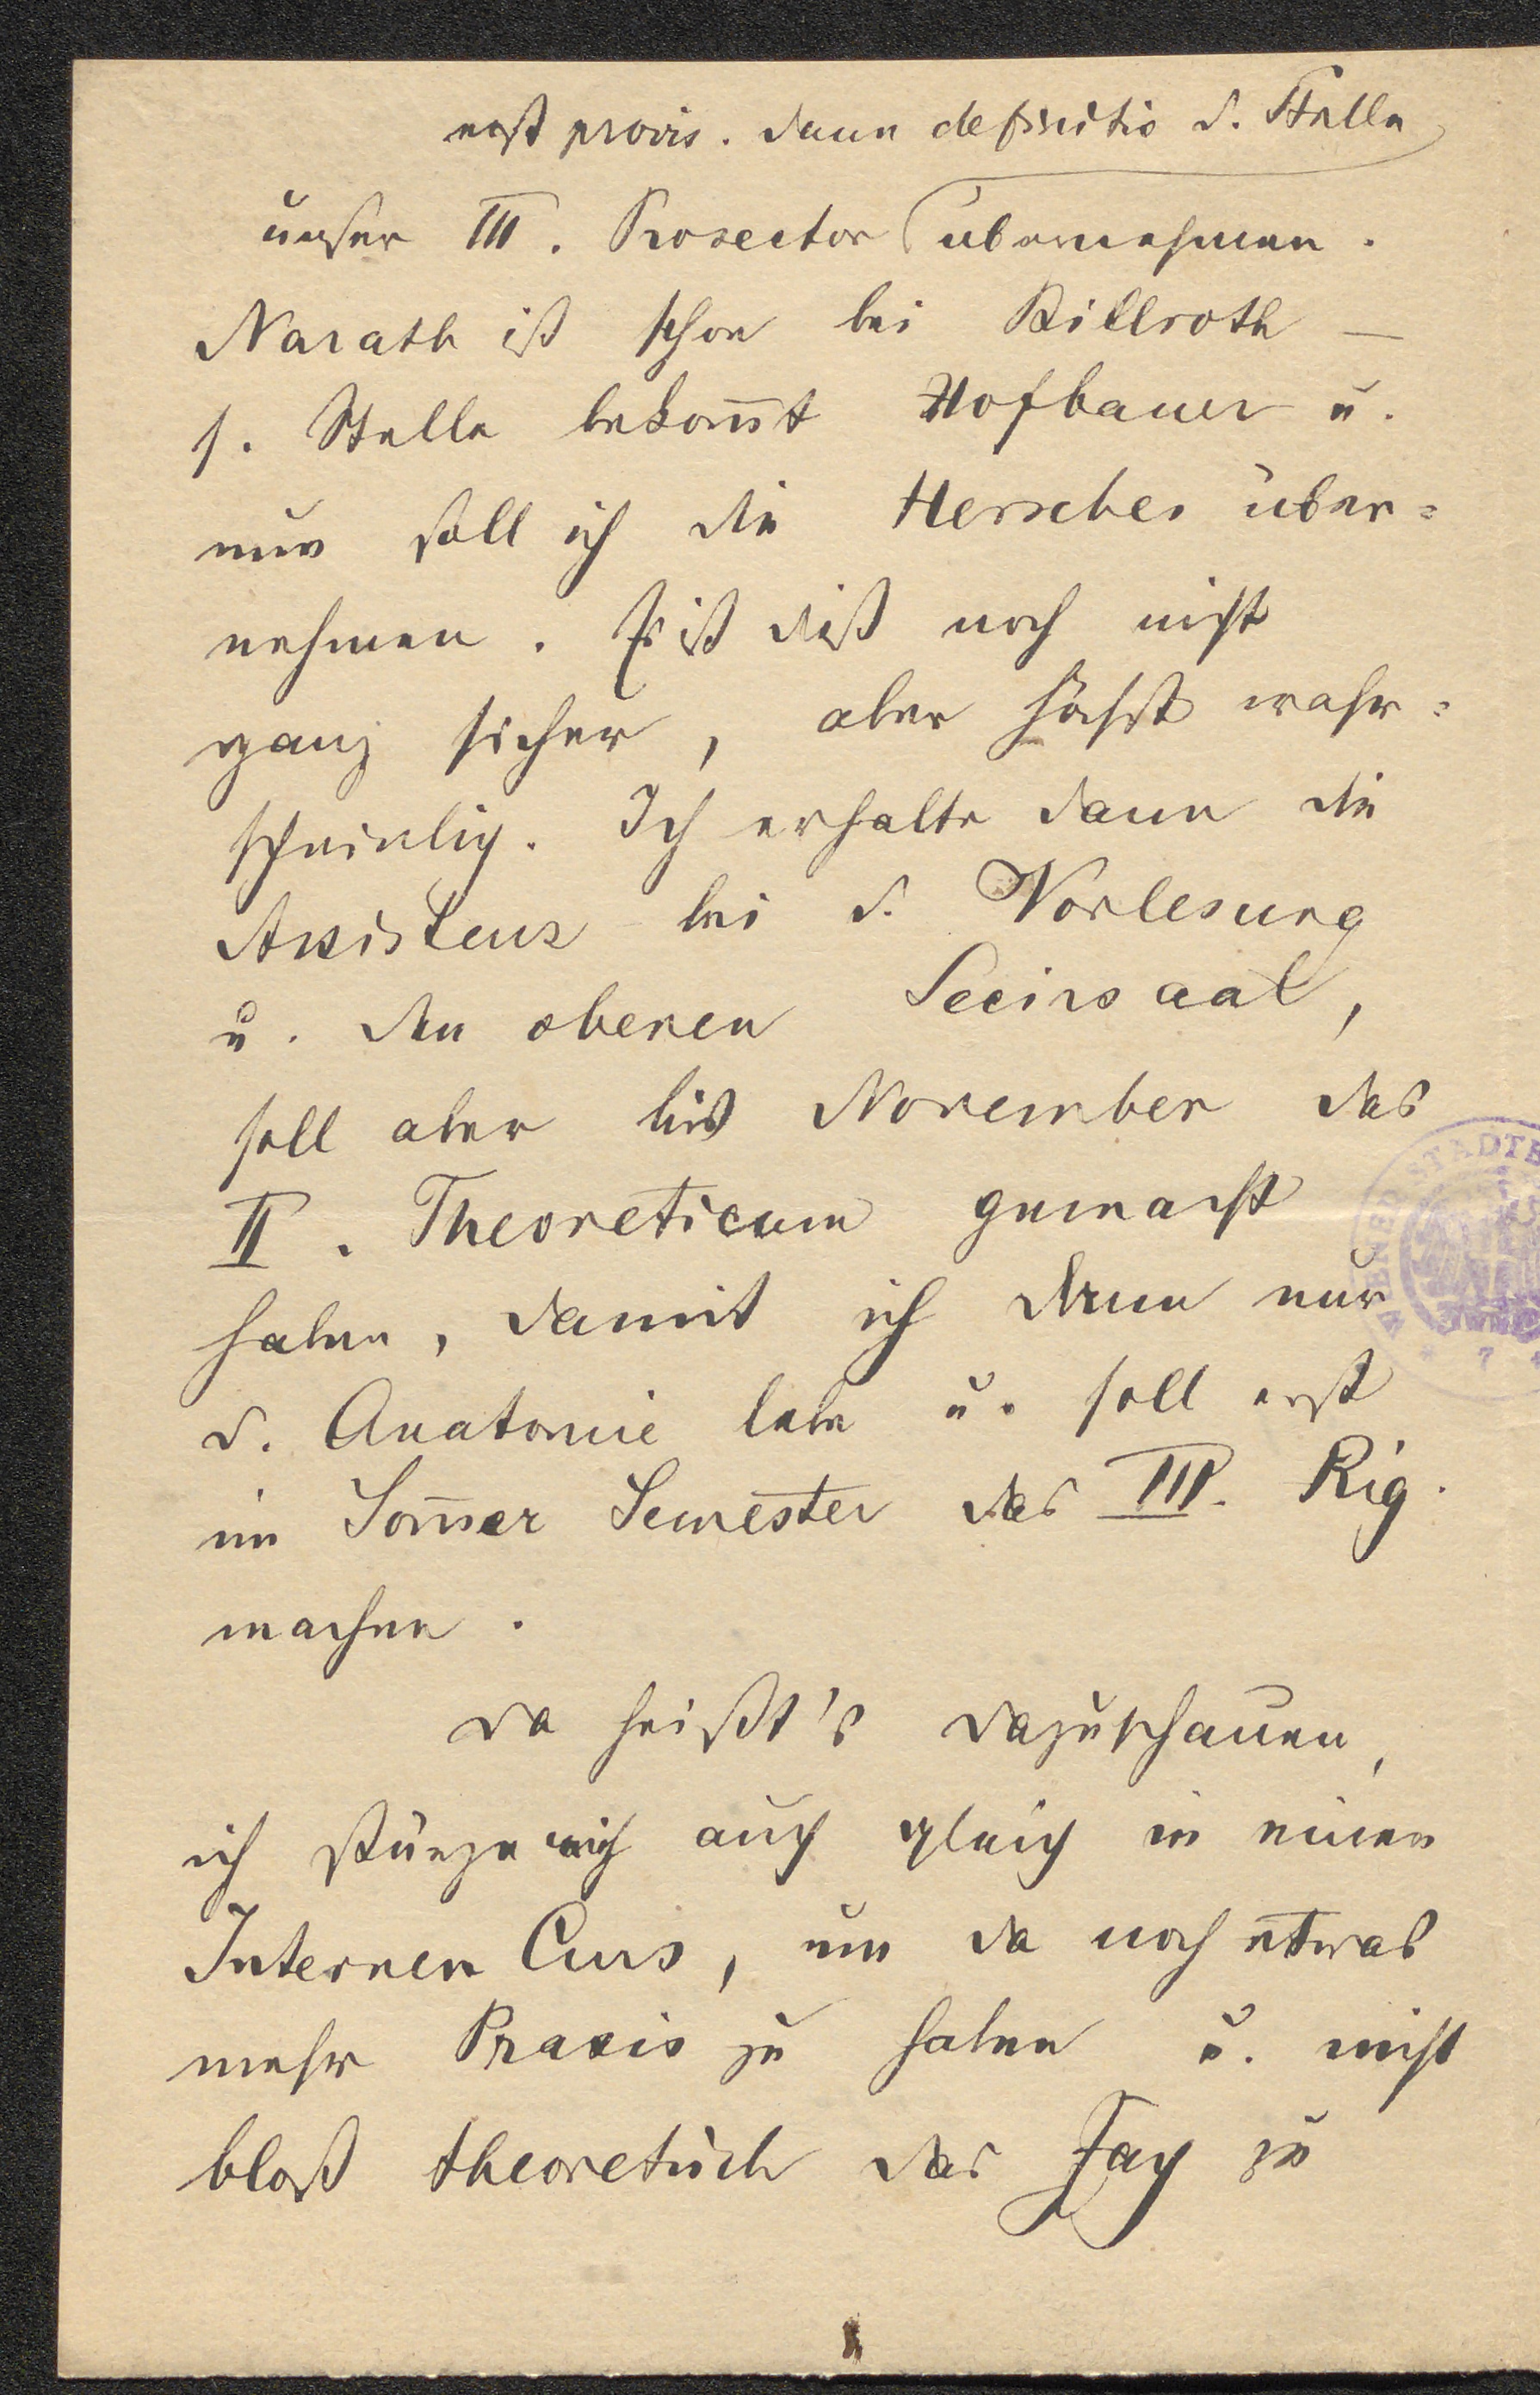 erst provis. dann definitiv d. Stelle
unser III. Prosector übernehmen.
Narath ist schon bei Billroth –
s. Stelle bekom̄t Hofbauer u.
nun soll ich die Herrscher über=
nehmen. Es ist dieß noch nicht
ganz sicher, aber höchst wahr=
scheinlich. Ich erhalte dann die
Assistenz bei d. Vorlesung
u. den oberen Secirsaal,
soll aber bis November das
II. Theoreticum gemacht
haben, damit ich dann nur
d. Anatomie lebe u. soll erst
im Som̄er Semester das III. Rig.
machen.
Da heißt's dazuschauen,
ich stürze mich auch gleich in einen
Internen Curs, um da noch etwas
mehr Praxis zu haben u. nicht
bloß theoretisch das Zeug zu
WIENER STÄDT
* 7 *